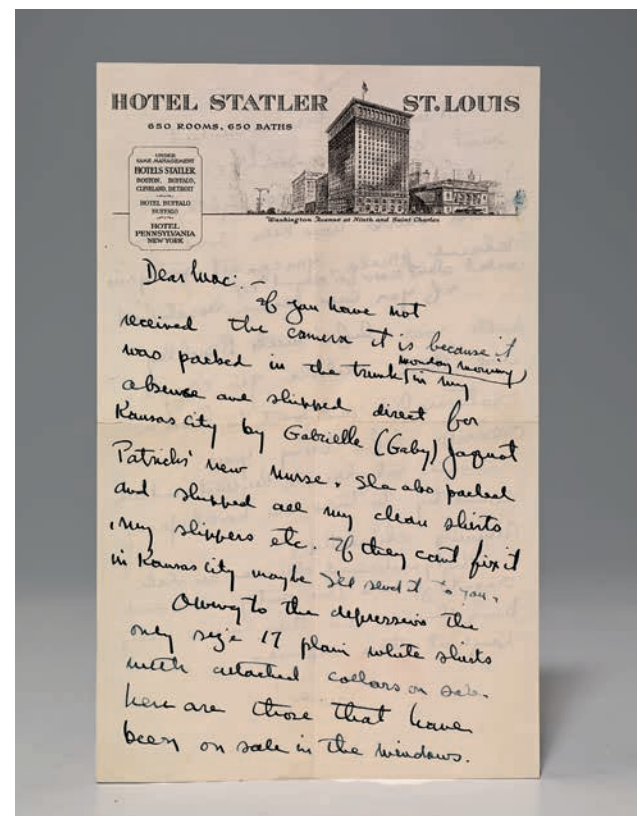 HOTEL STATLER ST. LOUIS
650 ROOMS, 650 BATHS
UNDER
SAME MANAGEMENT
HOTELS STATLER
BOSTON, BUFFALO,
CLEVELAND, DETROIT
HOTEL BUFFALO
BUFFALO
HOTEL
PENNSYLVANIA
NEW YORK
Washington Avenue at Ninth and Saint Charles
Dear Mac: –
If you have not
received the camera it is because it
was packed in the trunk monday morning in my
absence and shipped direct for
Kansas City by Gabrielle (Gaby) Jaquot
Patricks' new nurse. She also packed
and shipped all my clean shirts
, my slippers etc. If they cant fix it
in Kansas City maybe I'll send it to you.
Owing to the depression the
only size 17 plain white shirts
with attached collars on sale
here are those that have
been on sale in the windows.